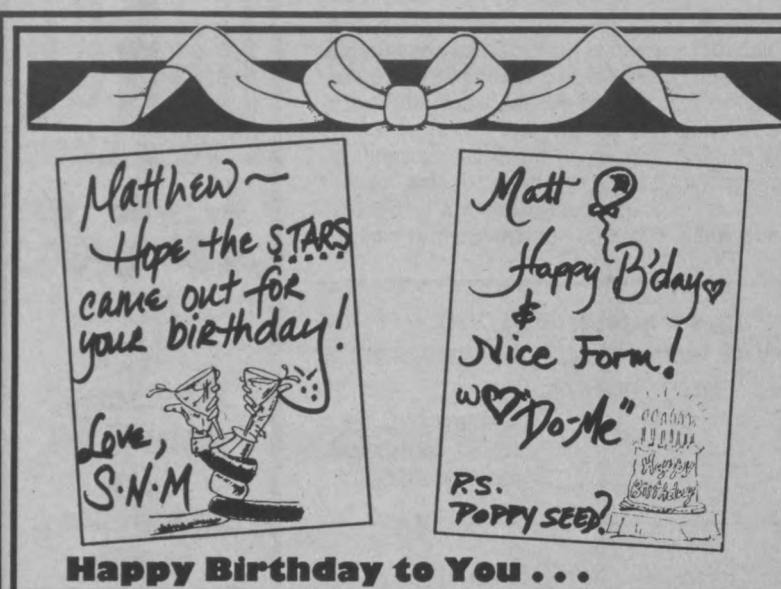 Matthew~
Hope the STARS
came out for
your birthday!
Love,
S·N·M
Matt
Happy B'day♡
&
Nice Form!
w♡"Do-Me"
P.S.
POPPY SEED?
Happy
Birthday
Happy Birthday to You . . .